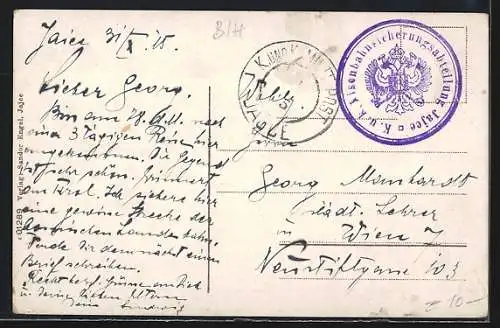 Jajce 31/X 15.
B/H
Lieber Georg.
Bin am 28. d. M. nach
einer 3 tägigen Reise hier
angekommen. Die Gegend
ist sehr schön. Erinnert
an Tirol. Ich sichere hier
eine gewisse Strecke der
bosnischen Landesbahn.
Werde Dir demnächst einen
Brief schreiben.
Grüsse an Dich
Deine lieben Eltern
Dein Ludwig
K. UND K. MILIT. POST
JAJCE
K. u. k. Eisenbahnsicherungsabteilung Jajce
Herrn
Georg Manhardt
Städt. Lehrer
Wien 7
Neustiftgasse 103
01289 Verlag Sandor Engel, Jajce
10-